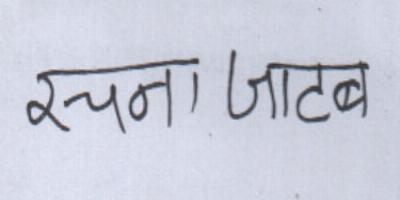 रचना जाटब